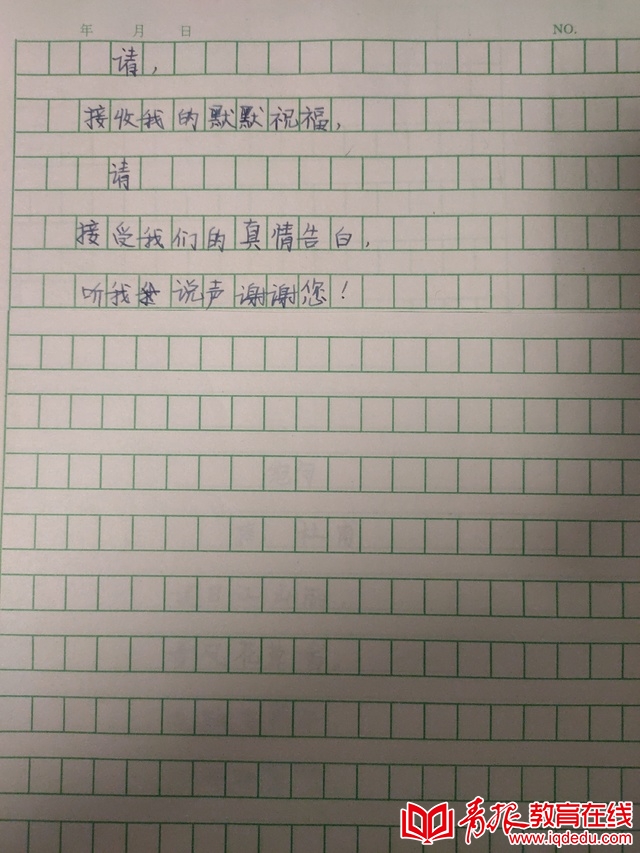 年 月 日 NO.
请，
接收我的默默祝福，
请
接受我们的真情告白，
听我说声谢谢您！
青报教育在线
www.iqdedu.com